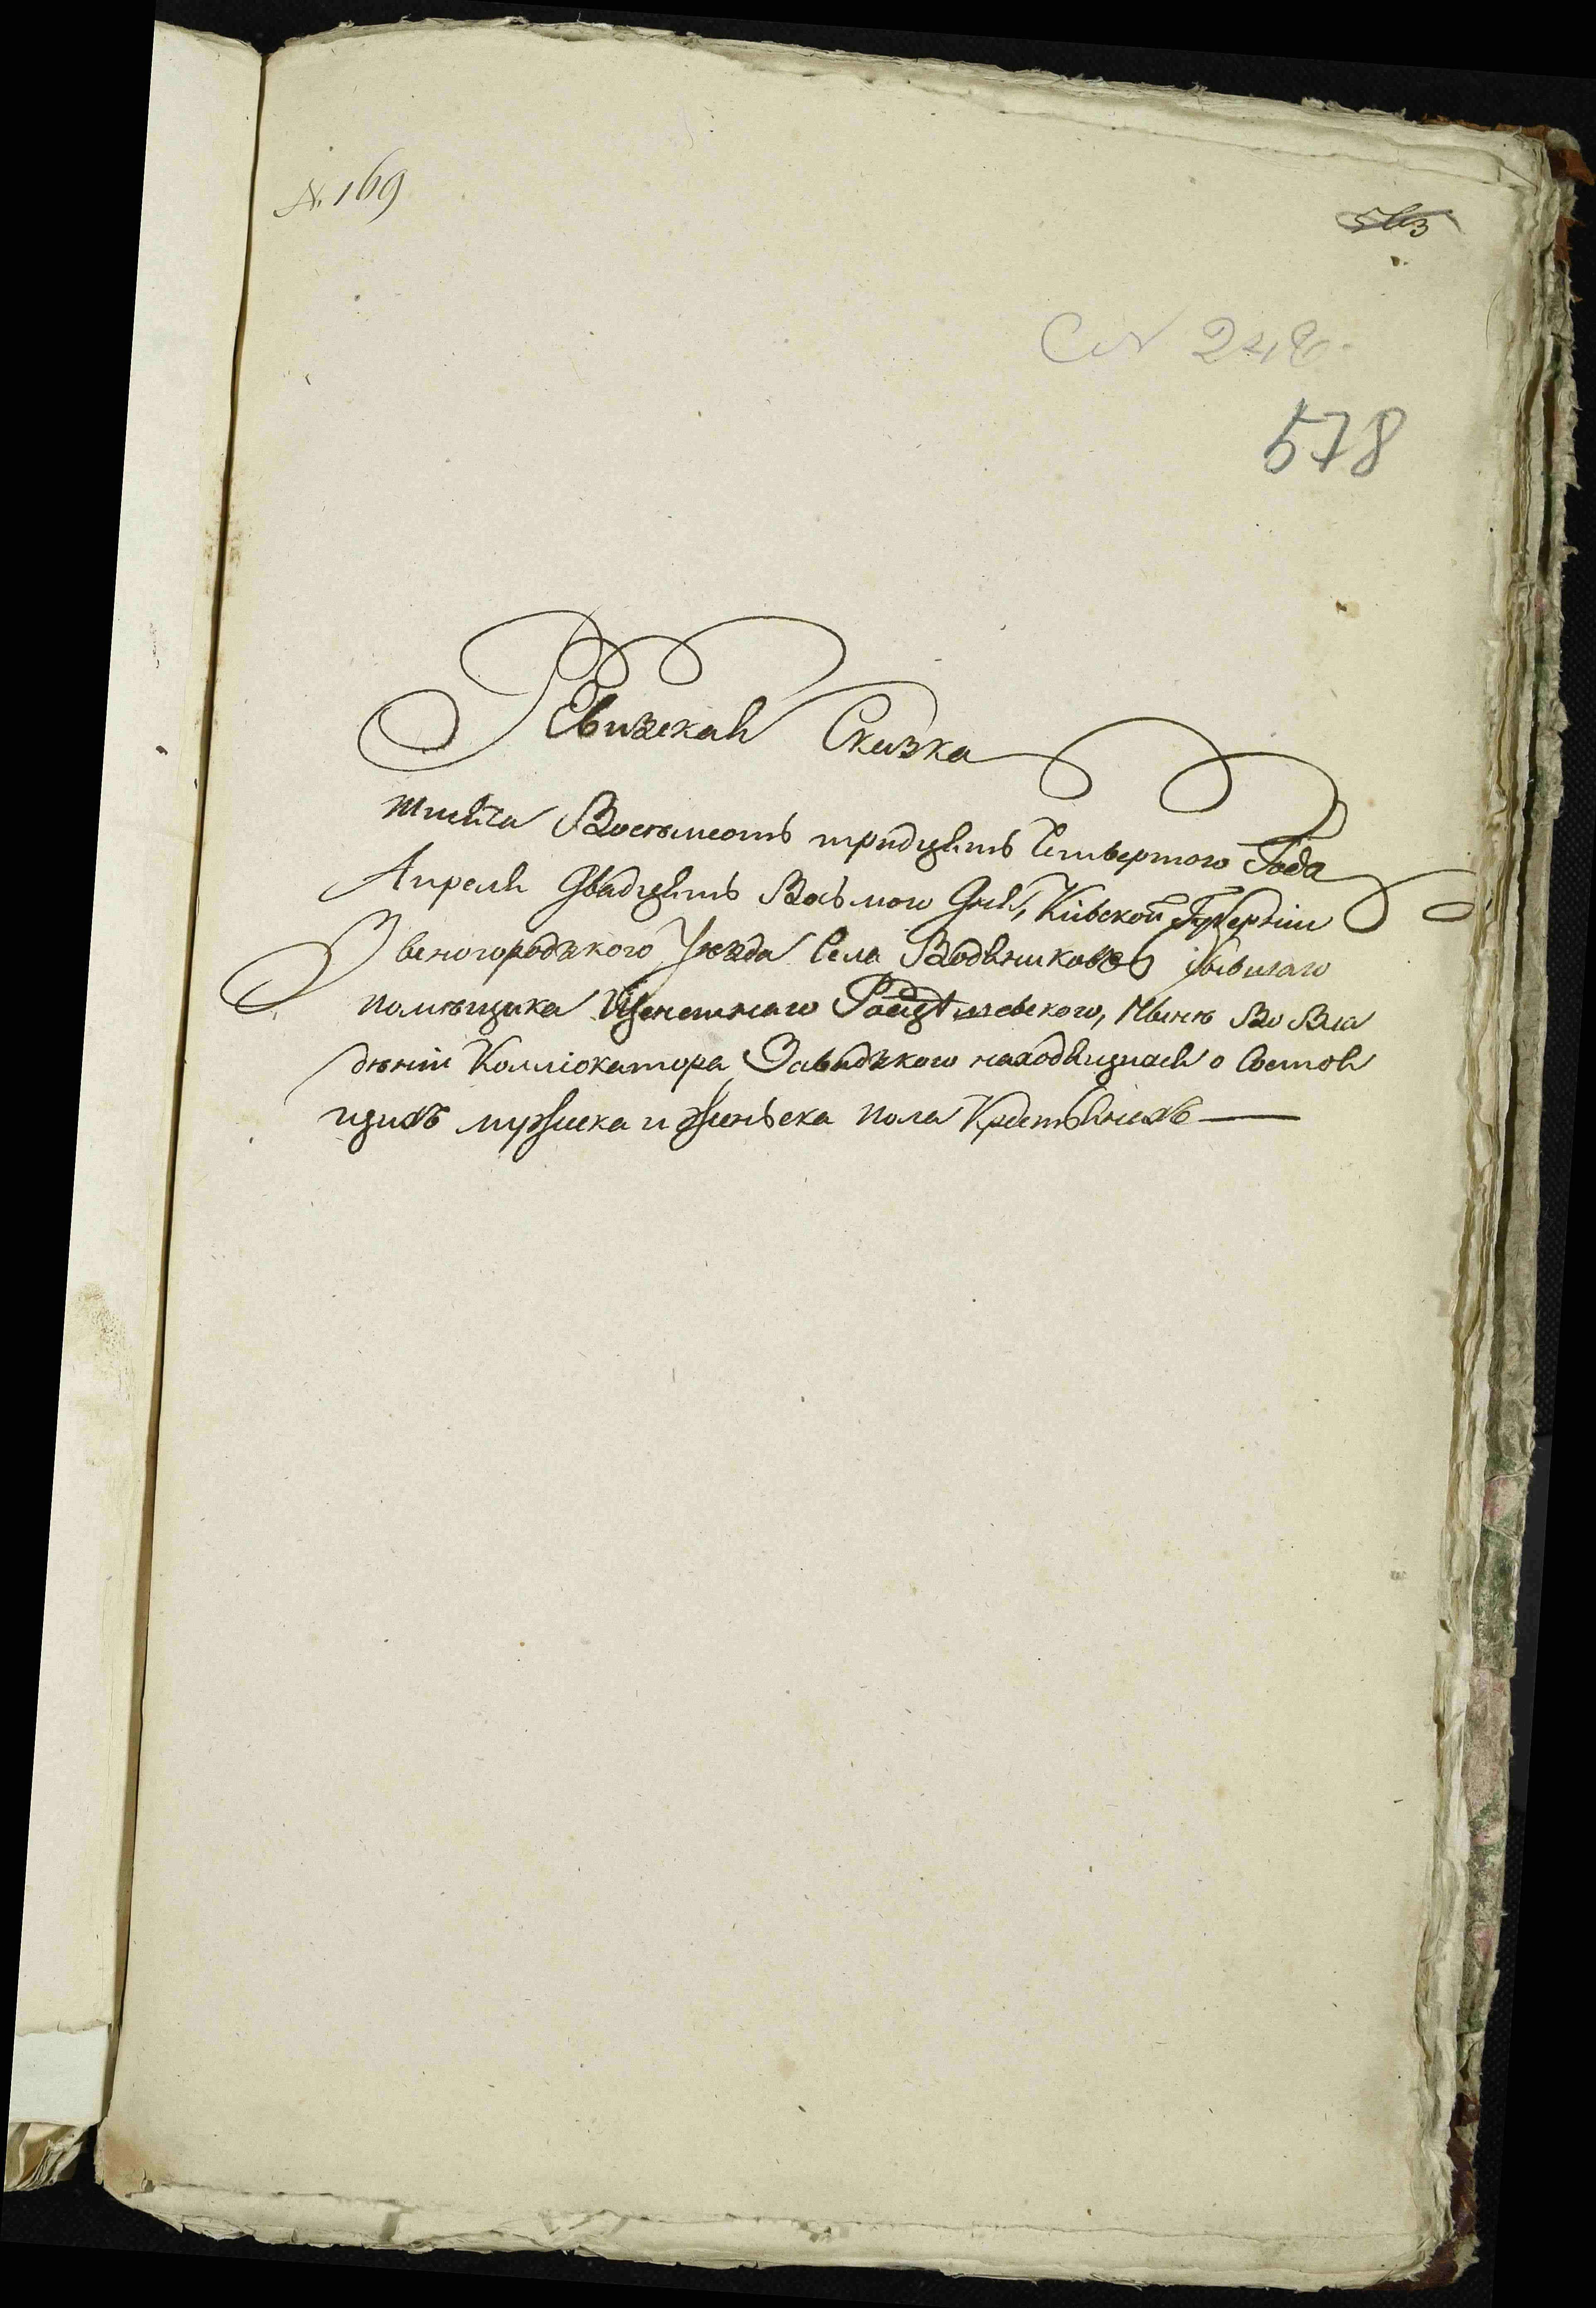 № 169
563
578
Ревизская Сказка
тисяча Восемьсотъ тридцять Четвертого Года
Апреля Двадцять Восьмого Дня, Кіевской Губерніи
Звеногородзкого Уезда Села Водяниковъ бывшаго
помѣщика Щенснаго Росцѣшевского, Нынѣ Во Вла
дѣніи Колліокатора Завадзкого находящися о Состоя
щихъ мужеска и женьска пола Крестьянахъ —